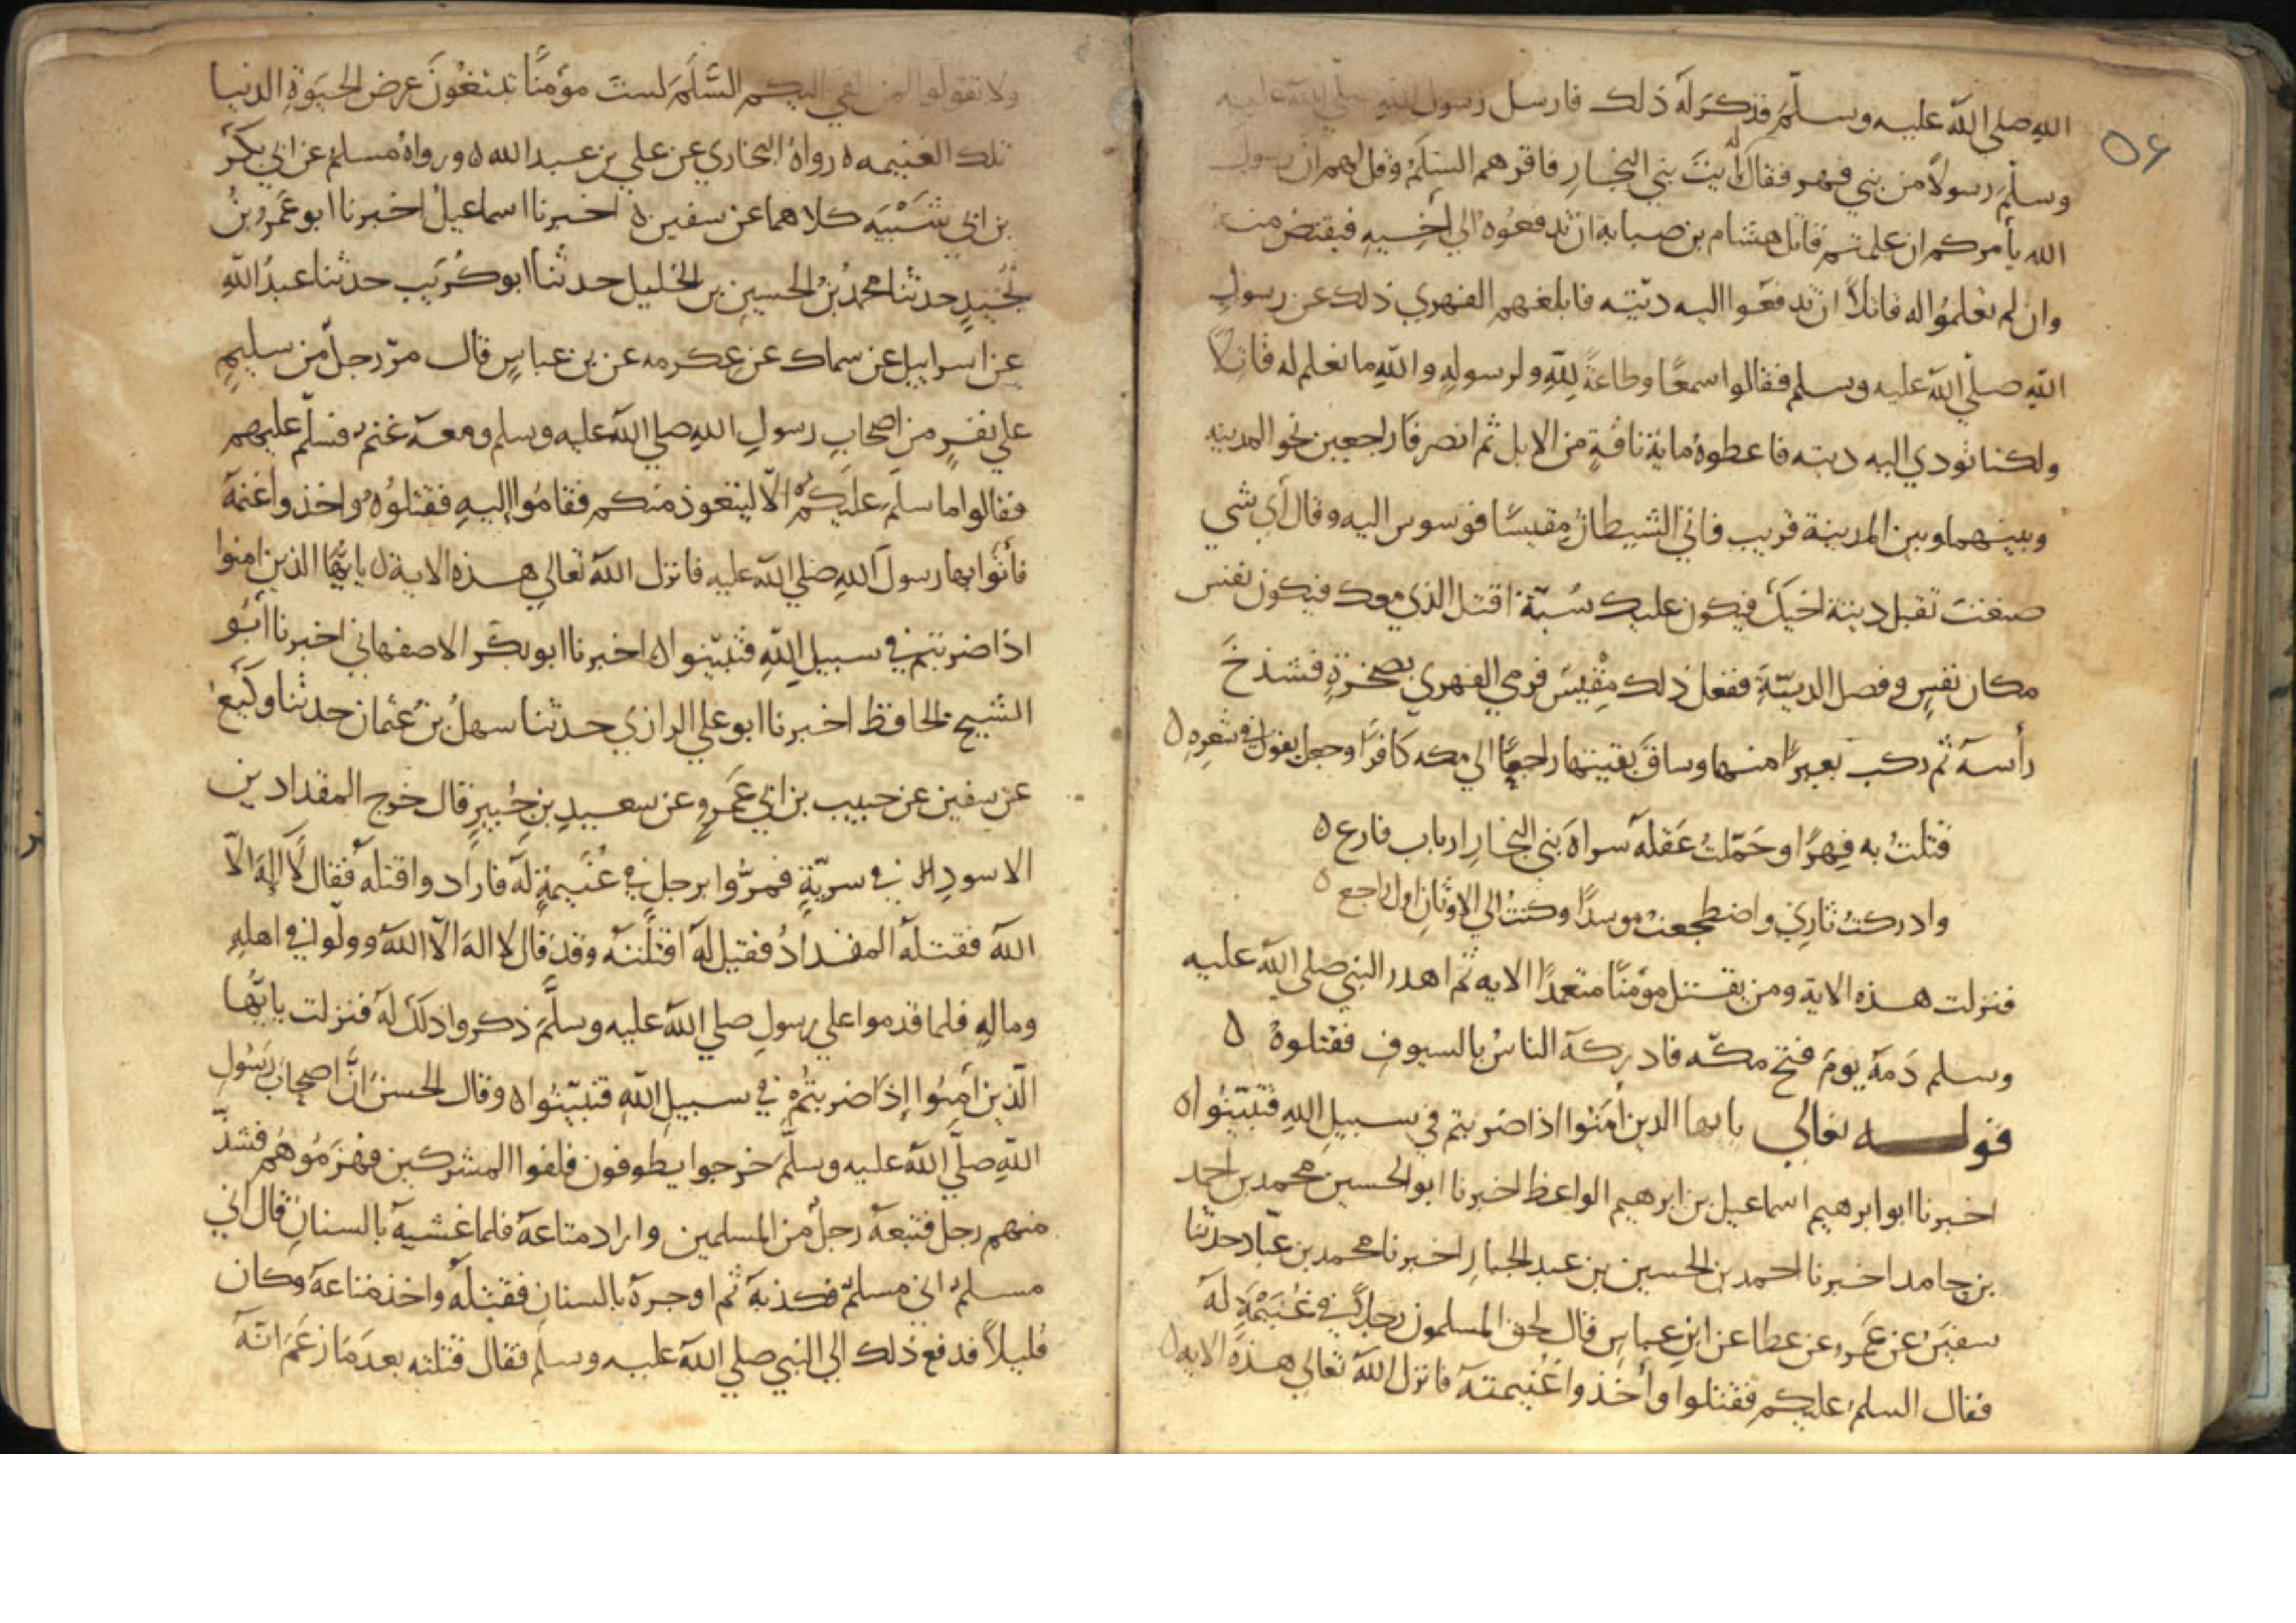 ٥٤
الله صلى الله عليه وسلم فذكر له ذلك فارسل رسول الله صلي الله عليه
وسلم رسولاً من بني فهر فقال له ايت بني النجار فاقرهم السلم وقل لهم ان رسول
الله يأمركم ان علمتم قاتل هشام بن صبابة ان تدفعوه الي أخيه فيقتص منه
وان لم تعلموا له قاتلاً ان تدفعوا اليه ديته فابلغهم الفهري ذلك عن رسول
الله صلي الله عليه وسلم فقالوا سمعًا وطاعةً لله ولرسوله والله ما نعلم له قاتلاً
ولكنا نودي اليه ديته فاعطوه ماية ناقة من الابل ثم انصرفا راجعين نحو المدينه
وبينهما وبين المدينة قريب فاتي الشيطان مقيسًا فوسوس اليه وقال أي شي
صنعت تقبل دية اخيك فيكون عليك سُبّة اقتل الذي معك فيكون نفس
مكان نفس وفصل الديّة ففعل ذلك مقيس فرمي الفهري بصخرة فشدخ
رأسه ثم ركب بعيرًا منها وساق بقيتها راجعًا الي مكه كافرًا وجعل يقول في شعره ه
قتلتُ به فهرًا وحمّلتُ عَقله سراة بني النجار ارباب فارع ه
وادركتُ ثاري واضطجعت موسدًا وكنتُ الي الاوثان اول راجع ه
فنزلت هذه الاية ومن يقتل مؤمنًا متعمدًا الايه ثم اهدر النبي صلي الله عليه
وسلم دَمه يوم فتح مكّه فادركه الناسُ بالسيوف فقتلوهُ ه
قوله تعالي يا ايها الدين أمَنوا اذا ضربتم في سبيل الله فتبيّنُوا ه
اخبرنا ابو ابرهيم اسماعيل بن ابرهيم الواعظ اخبرنا ابو الحسين محمد بن احمد
بن حامد اخبرنا احمد بن الحسين بن عبد الجبار اخبرنا محمد بن عبّاد حدثنا
سفين عن عَمرو عن عطا عن ابن عباس قال لحق المسلمون رجلاً في غُنَيْمَةٍ له
فقال السلم عليكم فقتلوا وأخذوا غُنيمته فانزل الله تعالي هذه الايه ه
ولا تقولوا لمن القي اليكم السَّلَمَ لستَ مؤمنًا تبتغُونَ عرض الحيَوةِ الدنيا
تلك الغنيمه ه رواه البخاري عن علي بن عبد الله ه ورواهُ مسلم عن ابي بكر
بن ابي شَيْبَه كلاهما عن سفين ه اخبرنا اسماعيلُ اخبرنا ابو عَمرو بنُ
نُجَيدٍ حدثنا محمدُ بنُ الحسينِ بن الخليل حدثنا ابو كُرَيب حدثنا عبدُ اللهِ
عن اسراييل عن سماك عن عكرمه عن بن عباسٍ قال مرّ رجلٌ من سليمٍ
علي نفرٍ من اصحابِ رسولِ اللهِ صلي الله عليه وسلم ومعه غنمٌ فسلّم عليهم
فقالوا ما سلّمَ عليكم الّا ليتعوذ منكم فقامُوا إليهِ فقتلُوهُ واخذوا غنمه
فأتَوا بها رسولَ اللهِ صلي الله عليه فانزل اللهُ تعالي هذه الاية ه يا ايُّهَا الذين امنوا
اذا ضربتم في سبيل اللهِ فتبيّنوا ه اخبرنا ابو بكر الاصفهاني اخبرنا ابو
الشيخ الحافظ اخبرنا ابو علي الرازي حدثنا سهلُ بنُ عثمان حدثنا وكيع
عن سفين عن حبيب بن ابي عَمرٍو عن سعيدِ بنِ جُبيرٍ قال خرج المقداد بن
الاسودِ في سريّةٍ فمرُّوا برجلٍ في غُنَيمةٍ له فارادوا قتله فقال لا اله الّا
الله فقتله المقدادُ فقيل له اقتلتَه وقد قال لا اله الّا الله وولّو اني اهلهِ
وماله فلما قدموا علي رسولِ صلي الله عليه وسلّمَ ذكروا ذلك له فنزلت يا ايُّها
الّذين آمنُوا إذا ضربتُم في سبيل الله فتبيّنُوا ه وقال الحسنُ انَّ اصحابَ رسُولِ
اللهِ صلَّي الله عليه وسلَّم خرجوا يطوفون فلقوا المشركين فهزَمُوهُم فشذّ
منهم رجل فتبعه رجلٌ من المسلمين واراد متاعه فلما غشيه بالسنانِ قال اني
مسلم اني مسلم فكذبه ثم اوجره بالسنان فقتله واخذ متاعه وكان
قليلاً فدفع ذلك الي النبي صلي الله عليه وسلّم فقال قتلته بعدَ مَا زعَمَ انّه